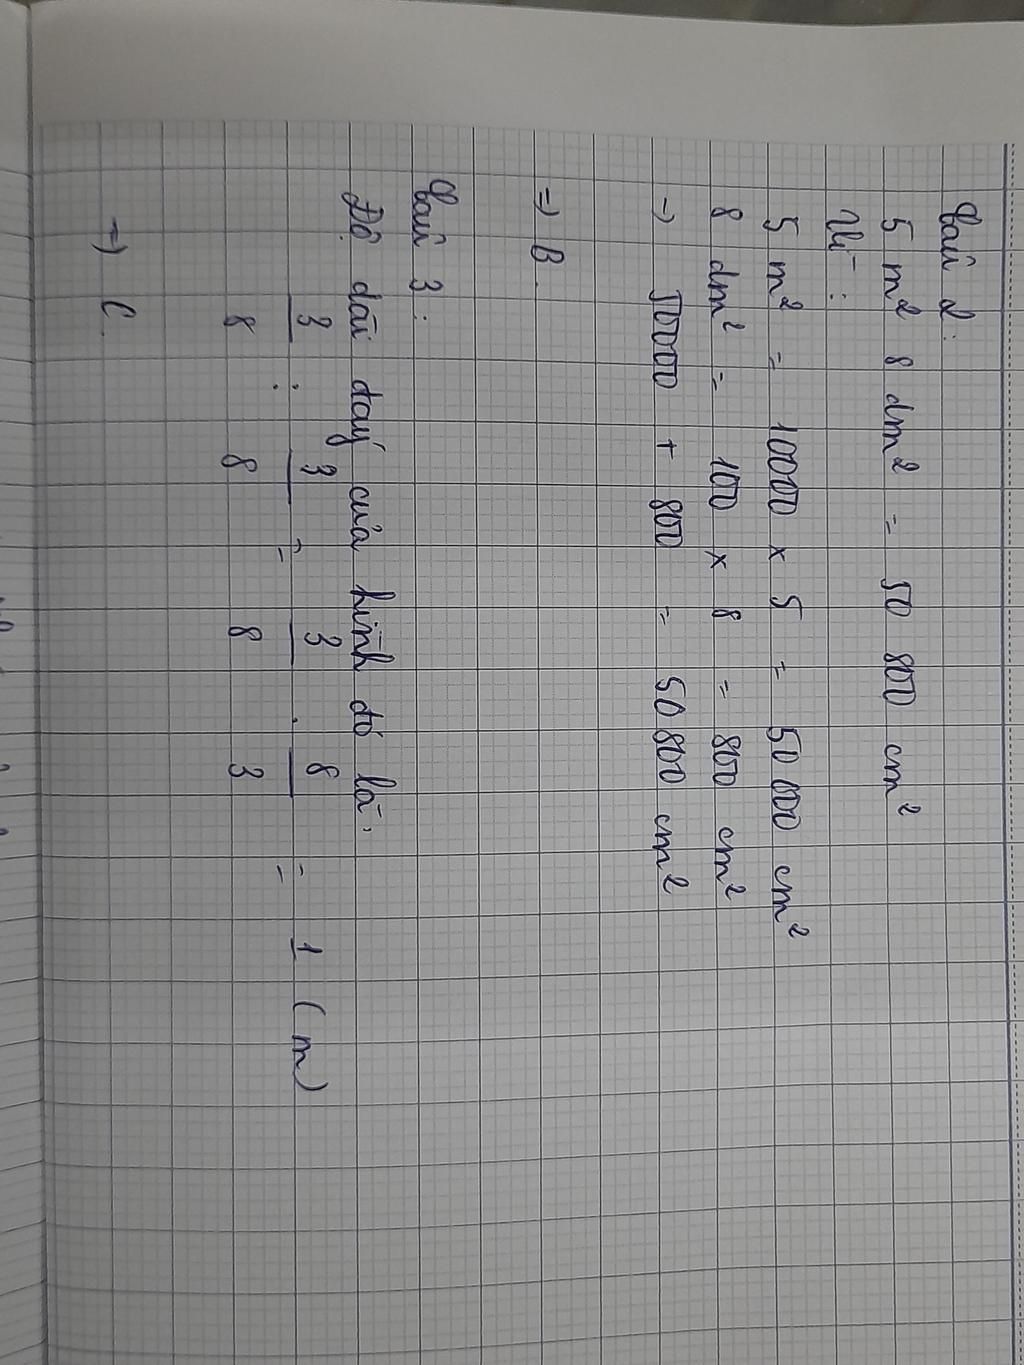 Câu 2:
5 m² 8 dm² = 50 800 cm²
Vì :
5 m² = 10000 x 5 = 50 000 cm²
8 dm² = 100 x 8 = 800 cm²
→ 50000 + 800 = 50 800 cm²
=> B.
Câu 3 :
Độ dài đáy của hình đó là:
3/8 : 3/8 = 3/8 . 8/3 = 1 (m)
=> C.